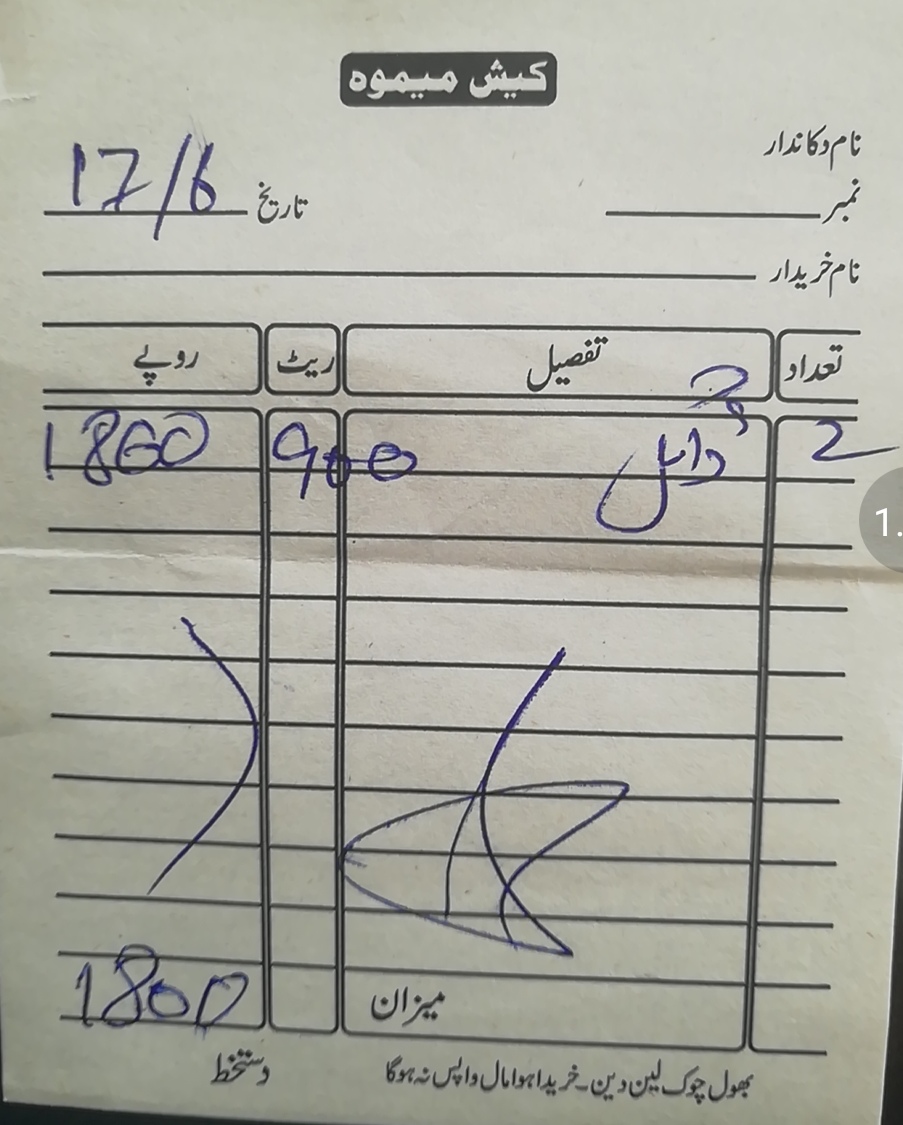 کیش میموہ
نام دکاندار
نمبر تاریخ 17/6
نام خریدار
تعداد تفصیل ریٹ روپے
2 900 1800
میزان 1800
بھول چوک لین دین۔خریدا ہوا مال واپس نہ ہوگا دستخط
1.